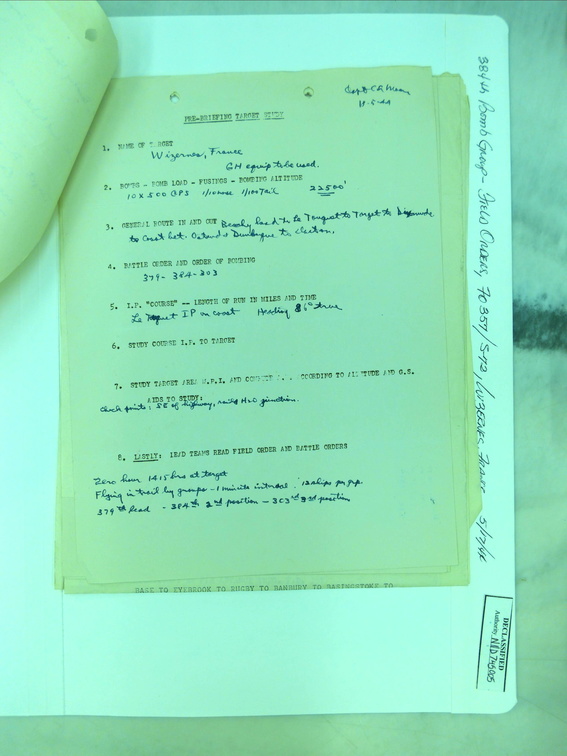 Capt CR
11-5-44
PRE-BRIEFING TARGET STUDY
1. NAME OF TARGET
Wizernes, France
GH equip to be used.
2. BOMBS - BOMB LOAD - FUSINGS - BOMBING ALTITUDE
10 X 500 GPS 1/10 nose 1/100 Tail 22500'
3. GENERAL ROUTE IN AND OUT Beachy head to Le Touquet to Target to
to Coast bet. Ostend & Dunkirque to
4. BATTLE ORDER AND ORDER OF BOMBING
379 - 384 - 303
5. I.P. "COURSE" -- LENGTH OF RUN IN MILES AND TIME
Le Touquet IP on coast Heading 86° true
6. STUDY COURSE I.P. TO TARGET
7. STUDY TARGET AREA M.P.I. AND ACCORDING TO ALTITUDE AND G.S.
AIDS TO STUDY:
Check points: SE of highway, rail & H2O junction.
8. LASTLY: LEAD TEAMS READ FIELD ORDER AND BATTLE ORDERS
Zero hour 1415 hrs at target
Flying in trail by groups - 1 minute interval. 12 ships per grp.
379th lead - 384th 2nd position - 303rd 3rd position
BASE TO EYEBROOK TO RUGBY TO BANBURY TO BASINGSTOKE TO
384th Bomb Group - Field Orders, FO 357/S-72/Wizernes, France 5/
DECLASSIFIED
Authority NND 745005